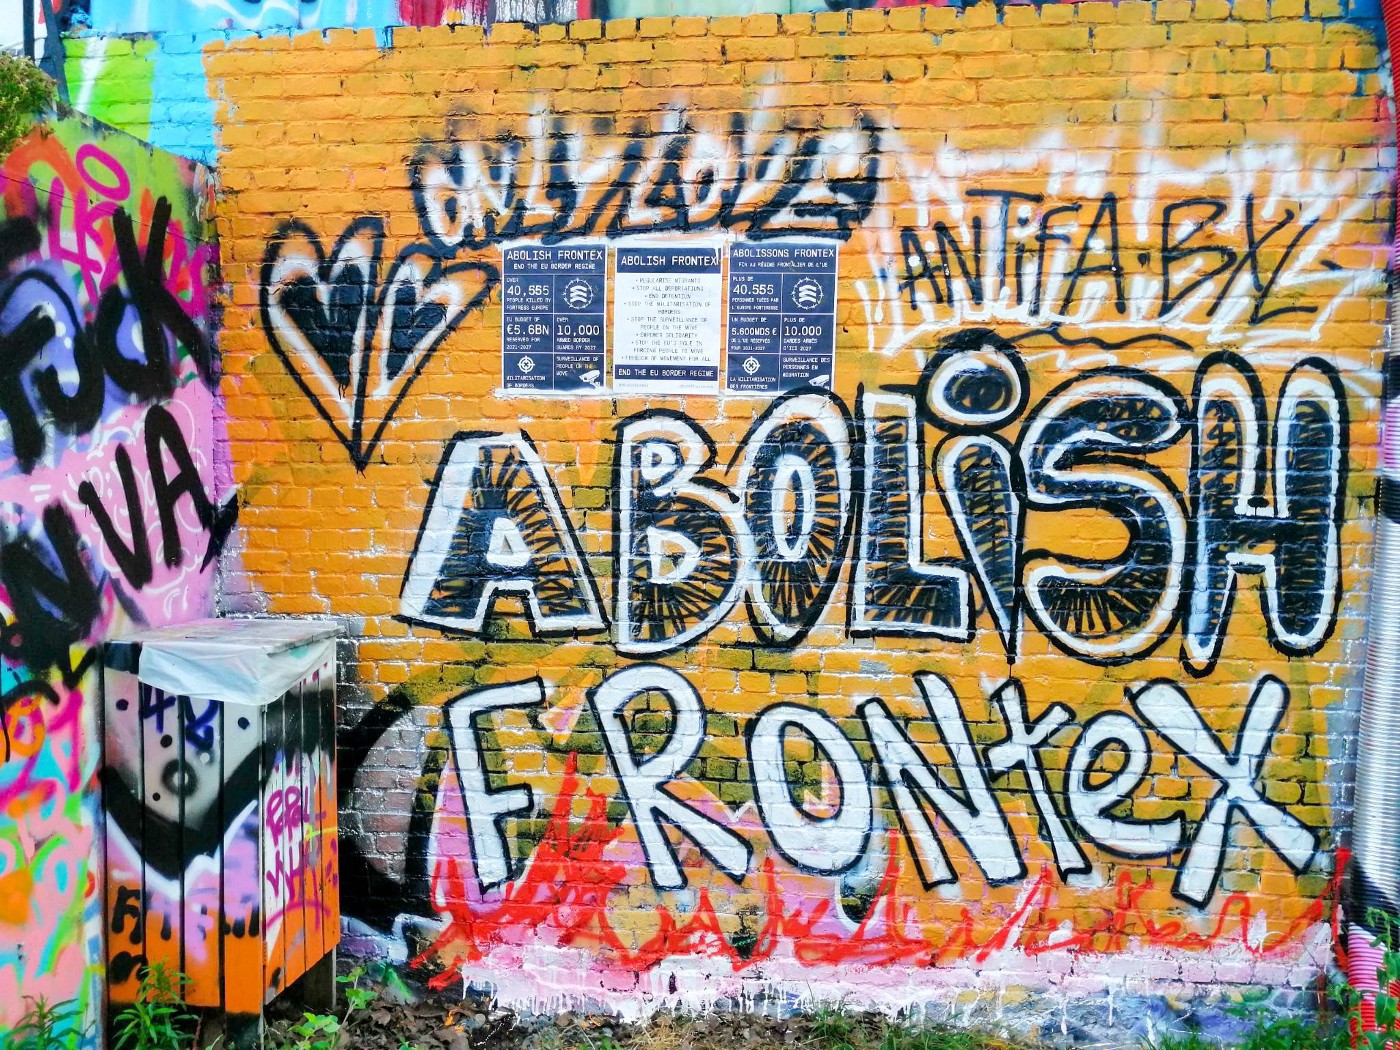 ONLY LOVE
ANTIFA·BXL
ABOLISH FRONTEX
END THE EU BORDER REGIME
OVER
40,555
PEOPLE KILLED BY
FORTRESS EUROPE
€5.6BN
RESERVED FOR
2021-2027
OVER
10,000
ARMED BORDER
GUARDS BY 2027
MILITARISATION
OF BORDERS
SURVEILLANCE OF
PEOPLE ON THE
MOVE
ABOLISH FRONTEX
• REGULARISE MIGRANTS
• STOP ALL DEPORTATIONS
• END DETENTION
• STOP THE MILITARISATION OF
BORDERS
• STOP THE SURVEILLANCE OF
PEOPLE ON THE MOVE
• STOP THE EU'S ROLE IN
FORCING PEOPLE TO MOVE
• FREEDOM OF MOVEMENT FOR ALL
END THE EU BORDER REGIME
ABOLISSONS FRONTEX
PLUS DE
40.555
PERSONNES TUÉES PAR
L'EUROPE FORTERESSE
UN BUDGET DE
5.600MDS €
2021-2027
PLUS DE
10.000
LA MILITARISATION
DES FRONTIÈRES
SURVEILLANCE DES
PERSONNES EN
MIGRATION
ABOLiSH
FRONteX
NVA